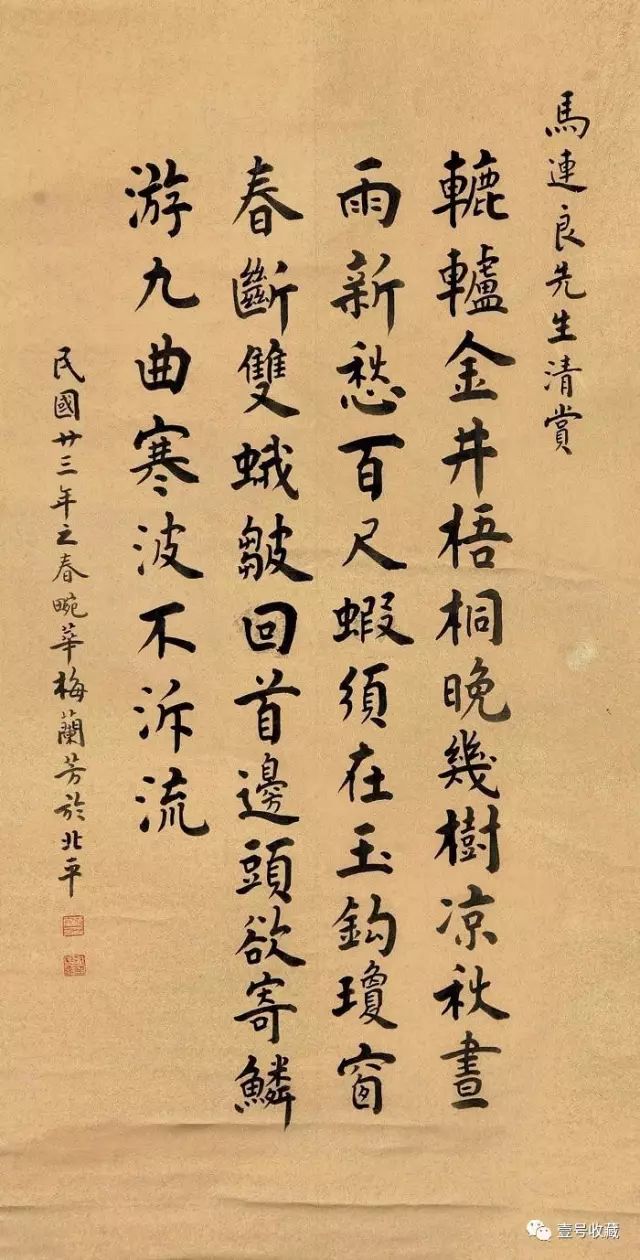 馬連良先生清賞
轆轤金井梧桐晚幾樹涼秋晝
雨新愁百尺蝦須在玉鈎瓊窗
春斷雙蛾皺回首邊頭欲寄鱗
游九曲寒波不泝流
民國廿三年之春畹華梅蘭芳於北平
壹号收藏